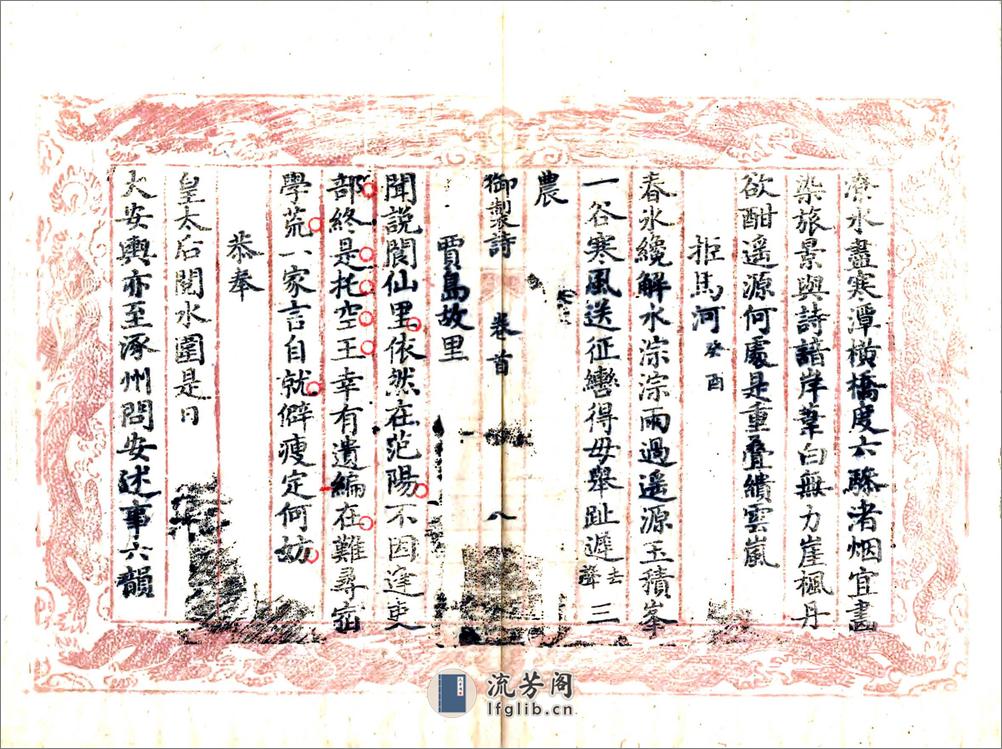 寒潭橫橋度六渚烟宜畫
染旅景與詩諳岸葦白無力崖楓丹
欲酣遥源何處是重疊繢雲嵐
拒馬河癸酉
春氷纔解水淙淙雨過遥源玉積峯
一谷寒風送征轡得毋舉趾遲三
農
御製詩 卷首 八
賈島故里
聞說閬仙里依然在范陽不因逢吏
部終是托空王幸有遺編在難尋宿
學荒一家言自就僻瘦定何妨
恭奉
皇太后閱水圍是日
大安輿亦至涿州問安述事六韻
流芳阁
lfglib.cn